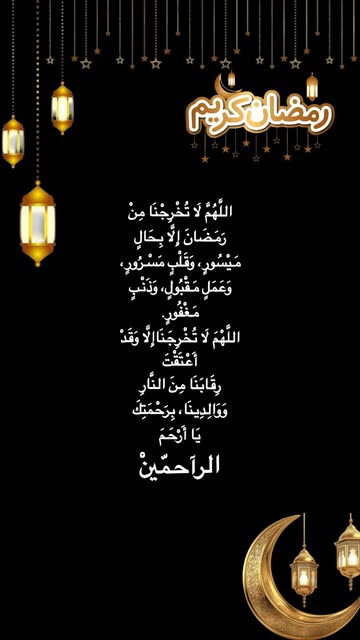 رمضان كريم
اللَّهُمَّ لَا تُخْرِجْنَا مِنْ
رَمَضَانَ إِلَّا بِحَالٍ
مَيْسُورٍ، وَقَلْبٍ مَسْرُورٍ،
وَعَمَلٍ مَقْبُولٍ، وَذَنْبٍ
مَغْفُورٍ.
اللَّهُمَ لَا تُخْرِجَنَا إِلَّا وَقَدْ
أَعْتَقْتَ
رِقَابَنَا مِنَ النَّارِ
وَوَالِدِينَا، بِرَحْمَتِكَ
يَا أَرْحَمَ
الرآحمّينْ